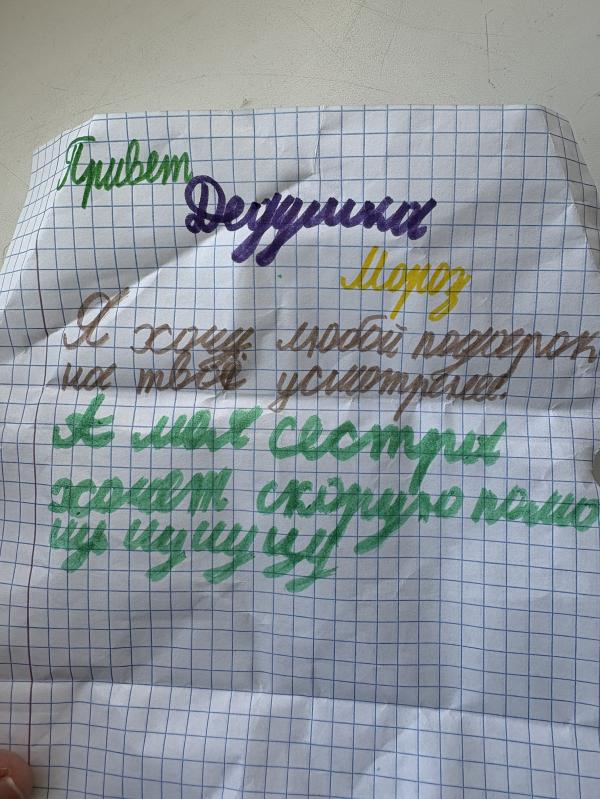 Привет
Дедушка
Мороз
Я хочу любой подарок
на твоё усмотрение.
А моя сестра
хочет скорую помо
щь